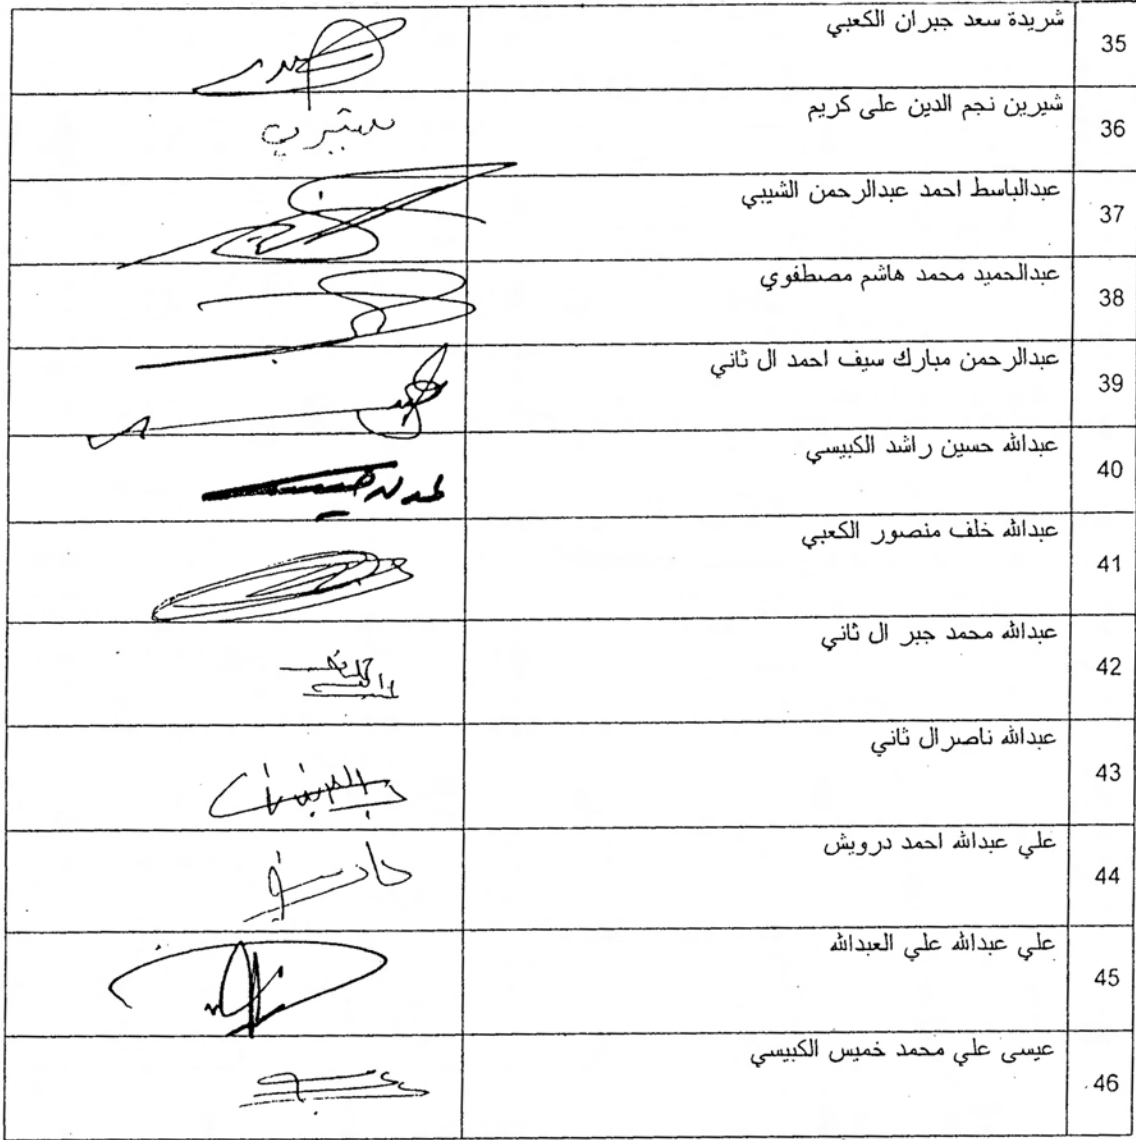 35 شريدة سعد جبران الكعبي
36 شيرين نجم الدين على كريم
شيرين
37 عبدالباسط احمد عبدالرحمن الشيبي
38 عبدالحميد محمد هاشم مصطفوي
39 عبدالرحمن مبارك سيف احمد ال ثاني
40 عبدالله حسين راشد الكبيسي
41 عبدالله خلف منصور الكعبي
42 عبدالله محمد جبر ال ثاني
43 عبدالله ناصر ال ثاني
44 علي عبدالله احمد درويش
45 علي عبدالله علي العبدالله
46 عيسى علي محمد خميس الكبيسي